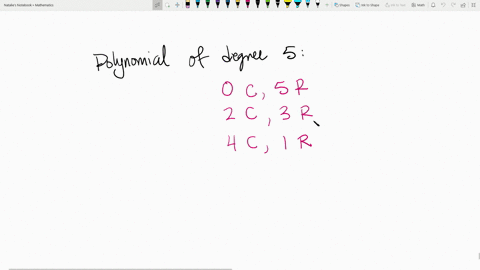 Natalie's Notebook • Mathematics
Shapes Ink to Shape Ink to Text Math Ink Replay
Polynomial of degree 5:
0 C, 5 R
2 C, 3 R
4 C, 1 R